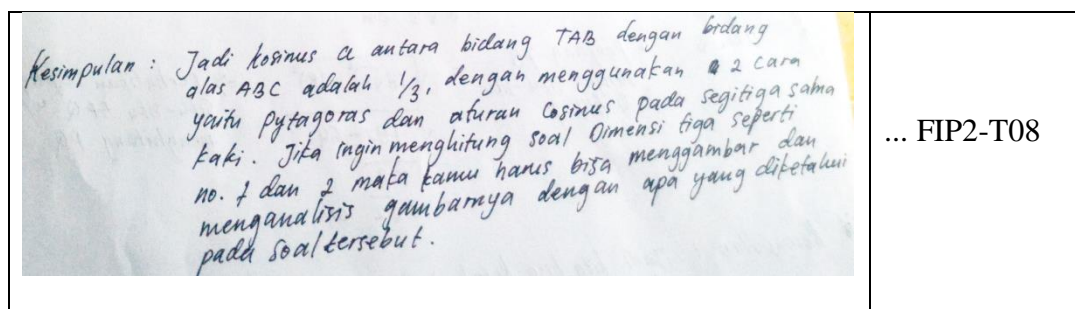 Kesimpulan : Jadi kosinus α antara bidang TAB dengan bidang
alas ABC adalah 1/3, dengan menggunakan 2 cara
yaitu pytagoras dan aturan Cosinus pada segitiga sama
kaki. Jika ingin menghitung soal Dimensi tiga seperti
no. 1 dan 2 maka kamu harus bisa menggambar dan
menganalisis gambarnya dengan apa yang diketahui
pada soal tersebut.
... FIP2-T08